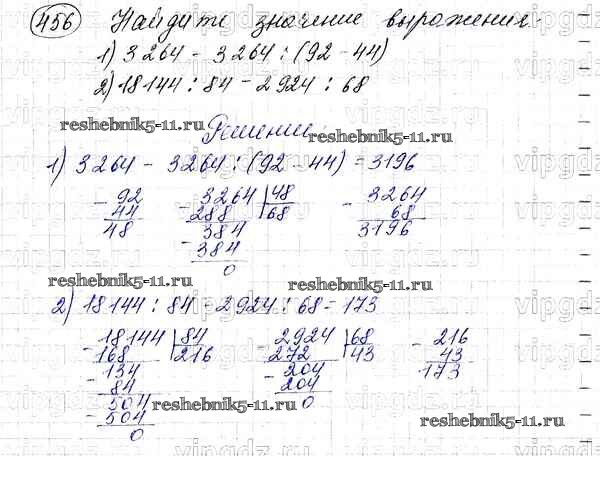 456 Найдите значение выражения.
1) 3264 - 3264 : (92 - 44)
2) 18144 : 84 - 2924 : 68
Решение.
1) 3264 - 3264 : (92 - 44) = 3196
- 92 - 3264 | 48 - 3264
44 288 | 68 68
48 - 384 3196
384
0
2) 18144 : 84 - 2924 : 68 = 173
- 18144 | 84 - 2924 | 68 - 216
168 | 216 272 | 43 43
- 134 - 204 173
84 204
- 504 0
504
0
reshebnik5-11.ru
reshebnik5-11.ru
reshebnik5-11.ru
reshebnik5-11.ru
reshebnik5-11.ru
reshebnik5-11.ru
vipgdz.ru